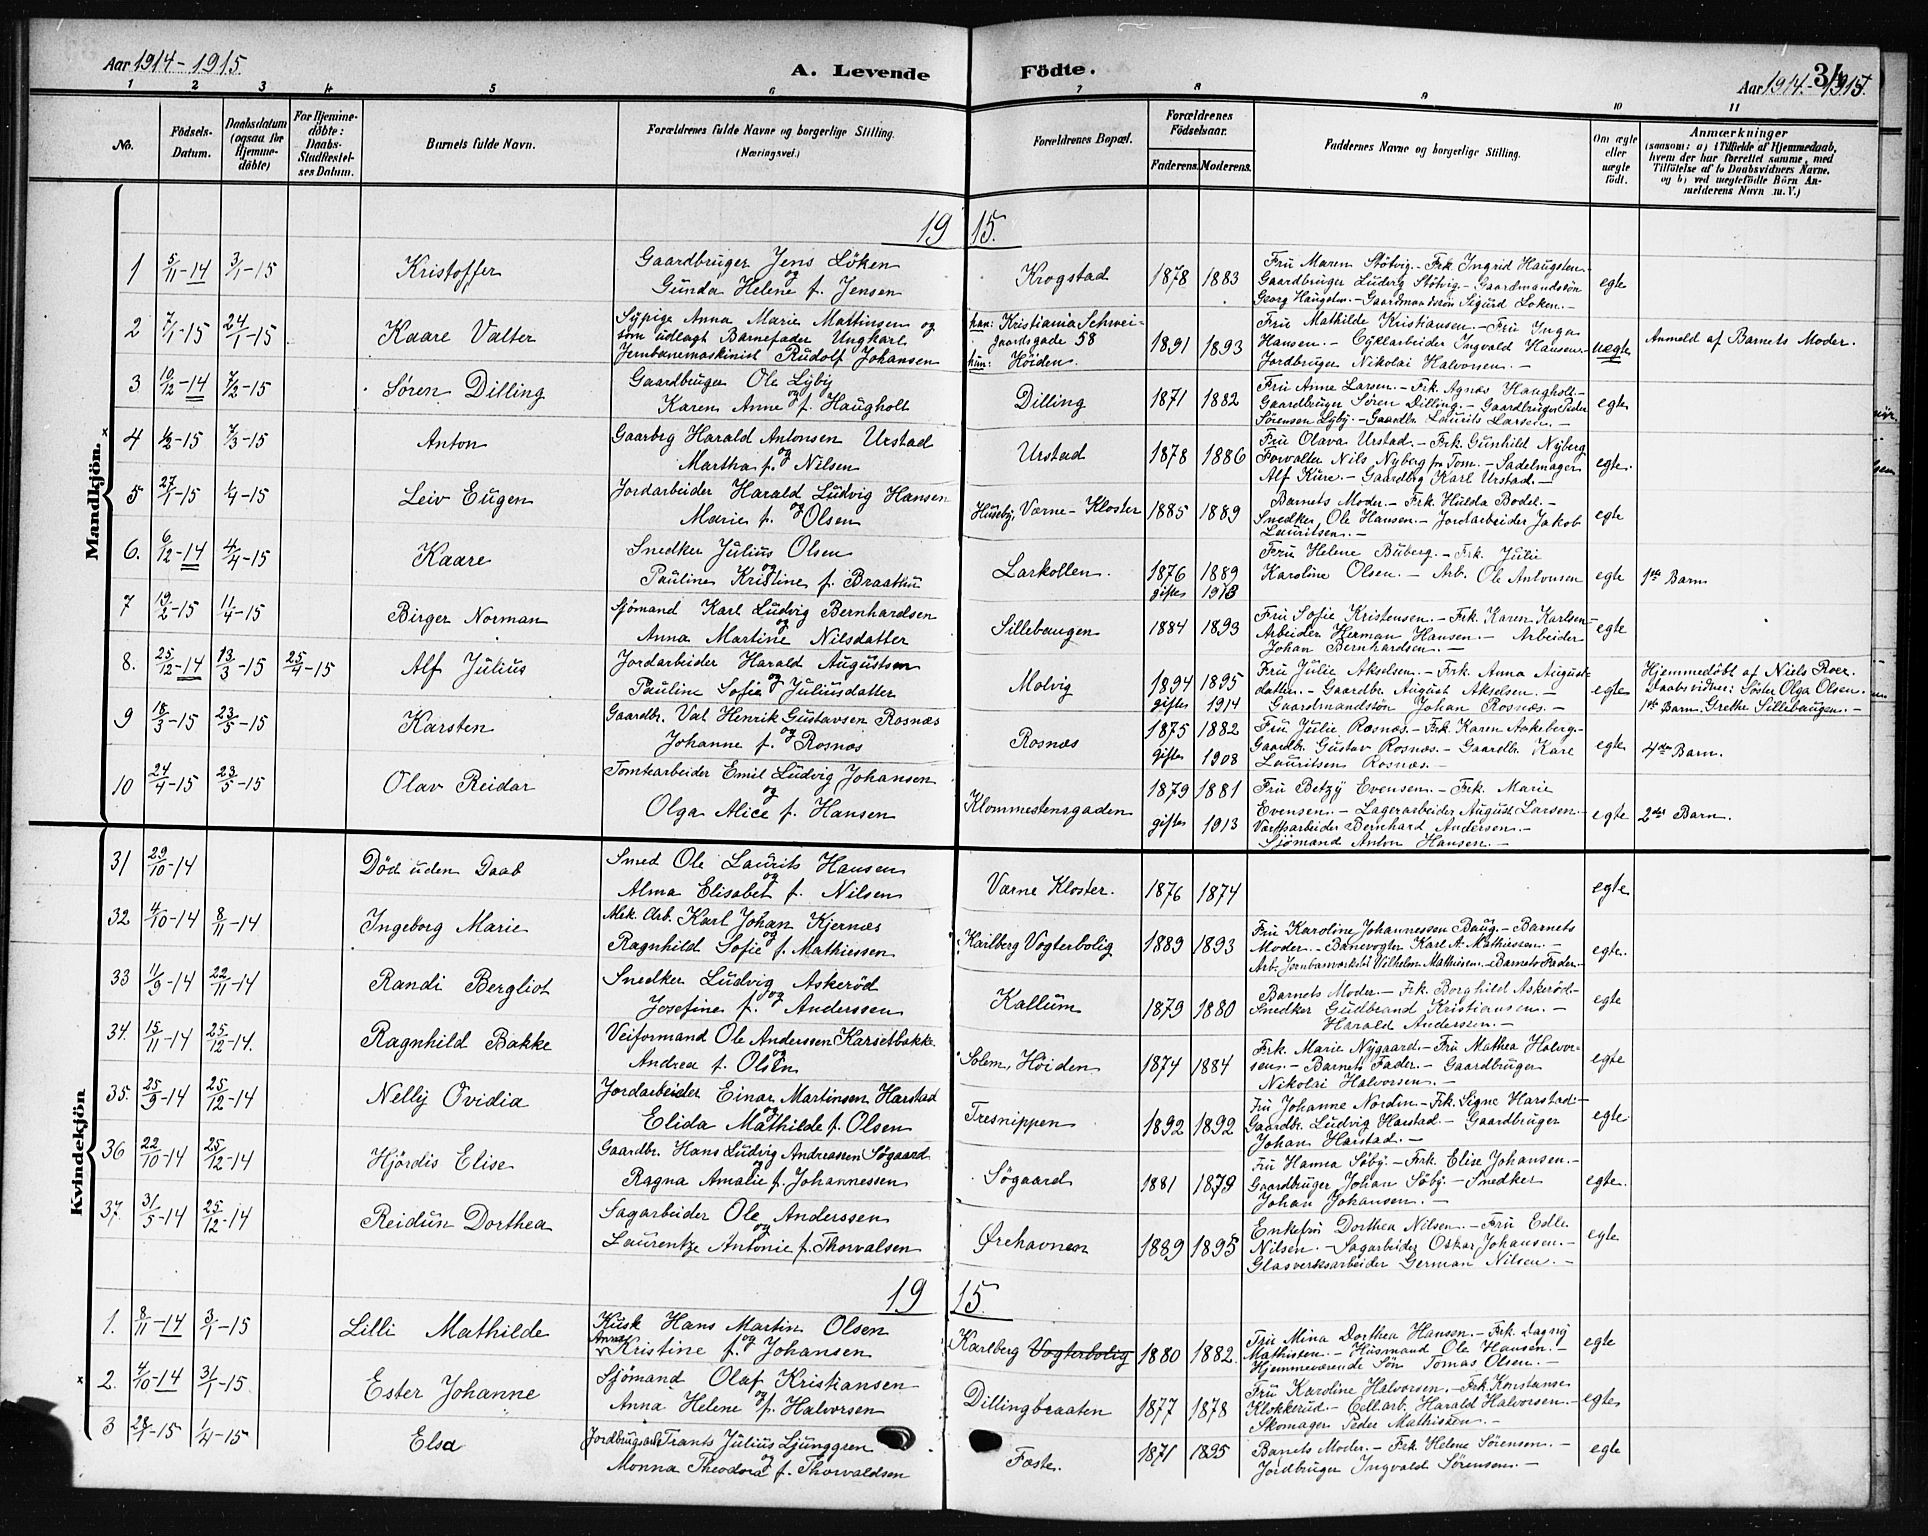 Aar 1914-1915.
A. Levende Födte.
Aar 1914-1915.
34
1 2 3 4 5 6 7 8 9 10 11
No.
Födsels-Datum.
Daabsdatum (ogsaa for Hjemmedöbte)
For Hjemmedöbte: Daabs-Stadfæstelses Datum.
Barnets fulde Navn.
Forældrenes fulde Navne og borgerlige Stilling. (Næringsvei.)
Forældrenes Bopæl.
Forældrenes Födselsaar.
Faderens. Moderens.
Faddernes Navne og borgerlige Stilling.
Om ægte eller uægte födt.
Anmærkninger
(saasom: a) i Tilfælde af Hjemmedaab,
hvem der har forrettet samme, med
Tilföielse af to Daabsvidners Navne,
og b) ved uægtefödte Börn An-
melderens Navn m. V.)
Mandkjön.
1915.
1 5/11-14 3/1-15 Kristoffer
Gaardbruger Jens Löken
og
Gunda Helene f. Jensen
Krogstad 1878 1883
Fru Maren Støtvig.- Frk. Ingrid Haugsten
Gaardbruger Ludvig Støtvig.- Gaardmandssön
Georg Haugsten.- Gaardmandssön Sigurd Løken.-
egte
2 7/1-15 24/1-15 Kaare Valter
Sypige Anna Marie Martinsen og
som udlagt Barnefader Ungkarl
Jernbanemaskinist Rudolf Johansen
han: Kristiania Schwei-
gaardsgade 58
hun: Höiden.
1891 1893
Fru Mathilde Kristiansen.- Fru Inga
Hansen.- Cyklarbeider Ingvald Hansen.-
Jordbruger Nikolai Halvorsen.-
uegte
Anmeld af Barnets Moder.
3 10/12-14 7/2-15 Søren Dilling
Gaardbruger Ole Lyby
og
Karen Anne f. Haugholt
Dilling 1871 1882
Fru Anne Larsen.- Frk. Agnes Haugholt.-
Gaardbruger Søren Dilling.- Gaardbruger Peder
Sørensen Lyby.- Gaardbr. Laurits Larsen.-
egte
4 6/2-15 7/3-15 Anton
Gaarbrg Harald Antonsen Urstad
og
Martha f. Nilsen
Urstad 1878 1886
Fru Olava Urstad.- Frk. Gunhild Nyberg
Forvalter Nils Nyberg fra Tom.- Sadelmager
Alf Kure.- Gaardbrg Karl Urstad.-
egte.
5 27/1-15 1/4-15 Leiv Eugen
Jordarbeider Harald Ludvig Hansen
og
Marie f. Olsen
Huseby, Varne-Kloster 1885 1889
Barnets Moder.- Frk. Hulda Bodel.-
Snedker Ole Hansen.- Jordarbeider Jakob
Lauritsen.-
egte
6. 6/12-14 4/4-15 Kaare
Snedker Julius Olsen
og
Pauline Kristine f. Braathu
Larkollen. 1876 1889
giftes 1913
Fru Helene Buberg.- Frk. Julie
Karoline Olsen.- Arb. Ole Antonsen
egte 1ste Barn
7 19/2-15 11/4-15 Birger Norman
Sjömand Karl Ludvig Bernhardsen
og
Anna Martine Nilsdatter
Sillebaugen 1884 1893
Fru Sofie Kristensen.- Frk. Karen Karlsen-
Arbeider Herman Hansen.- Arbeider
Johan Bernhardsen.-
egte
8. 25/12-14 13/3-15 25/4-15 Alf Julius
Jordarbeider Harald Augustsen
og
Pauline Sofie Juliusdatter
Molvig 1894 1895
giftes 1914
Fru Julie Akselsen.- Frk. Anna August-
datter.- Gaardbr. August Akselsen.-
Gaardmandssön Johan Rosnæs.-
egte
Hjemmedöbt af Niels Roer.
Daabsvidner: Søster Olga Olsen.
1ste Barn. Grethe Sillebaugen.-
9 18/3-15 23/5-15 Karsten
Gaardbr. Val Henrik Gustavsen Rosnæs
og
Johanne f. Rosnæs
Rosnæs 1875 1882
giftes 1908
Fru Julie Rosnæs.- Frk. Karen Aakeberg.-
Gaardbr. Gustav Rosnæs.- Gaardbr. Kare
Lauritsen Rosnæs.-
egte 4de Barn.
10 24/4-15 23/5-15 Olav Reidar
Tomtearbeider Emil Ludvig Johansen
og
Olga Alice f. Hansen
Klommestensgaden 1879 1881
giftes 1913
Fru Betzy Evensen.- Frk. Marie
Evensen.- Lagerarbeider August Larsen.-
Værftsarbeider Bernhard Andersen.-
Sjömand Anton Hansen.-
egte 2det Barn.
Kvindekjön
31 29/10-14 Död uden Daab
Smed Ole Laurits Hansen
og
Alma Elisabet f. Nilsen
Varne Kloster. 1876 1874 egte
32 4/10-14 8/11-14 Ingeborg Marie
Mek. Arb. Karl Johan Kjernæs
og
Ragnhild Sofie f. Mathiessen
Karlberg Vogterbolig 1889 1893
Fru Karoline Johannessen Baug.- Barnets
Moder.- Banevogter Karl A. Mathiessen.-
Arb. Jernbaneverksted Vilhelm Mathiesen.- Barnets Fader.-
egte.
33 11/9-14 22/11-14 Randi Bergliot
Snedker Ludvig Askeröd
og
Josefine f. Anderssen
Kallum 1879 1880
Barnets Moder.- Frk. Borghild Askeröd.-
Snedker Gudbrand Kristiansen.-
Harald Anderssen.-
egte
34. 15/11-14 25/12-14. Ragnhild Bakke
Veiformand Ole Anderssen Karsetbakke
og
Andrea f. Olsen
Solem, Höiden 1874 1884
Frk. Marie Nygaard.- Fru Mathea Halvor-
sen.- Barnets Fader.- Gaardbruger
Nikolai Halvorsen.-
egte
35. 25/9-14 25/12-14 Nelly Ovidia
Jordarbeider Einar Martinsen Harstad
og
Elida Mathilde f. Olsen
Tresnippen 1892 1892
Fru Johanne Nordin.- Frk. Signe Harstad.-
Gaardbr. Ludvig Harstad.- Gaardbruger
Johan Harstad.-
egte.
36 22/10-14 25/12-14 Hjördis Elise
Gaardbr. Hans Ludvig Andreassen Søgaard
og
Ragna Amalie f. Johannessen
Søgaard 1881 1879
Fru Hanna Søby.- Frk. Elise Johansen.-
Gaardbruger Johan Søby.- Snedker
Johan Johansen.-
egte.
37. 31/5-14 25/12-14 Reidun Dorthea
Sagarbeider Ole Anderssen
og
Laurentze Antonie f. Thorvalsen
Ørehavnen 1889 1895
Enkefru Dorthea Nilsen.- Fru Edle
Nilsen.- Sagarbeider Oskar Johansen.-
Glasverksarbeider German Nilsen.-
egte
1915.
1. 8/11-14 3/1-15 Lilli Mathilde
Kusk Hans Martin Olsen
og
Anna Kristine f. Johansen
Karlberg Vogterbolig 1880 1882.
Fru Mina Dorthea Hansen.- Frk. Dagny
Mathisen.- Husmand Ole Hansen.-
Hjemmeværende Sön Tomas Olsen.-
egte
2. 4/10-14 31/1-15. Ester Johanne
Sjömand Olaf Kristiansen
og
Anna Helene f. Halvorsen
Dillingbraaten 1877 1878
Fru Karoline Halvorsen.- Frk. Konstanse
Klokkerud.- Cell.arb. Harald Halvorsen.-
Skomager Peder Mathissen.-
egte
3 28/1-15 1/4-15 Elsa
Frants Julius Ljunggren
og
Monna Theodora f. Thorvaldsen
Foste. 1871 1895
Barnets Moder.- Frk. Helene Sørensen.-
Jordbruger Ingvald Sørensen.-
egte